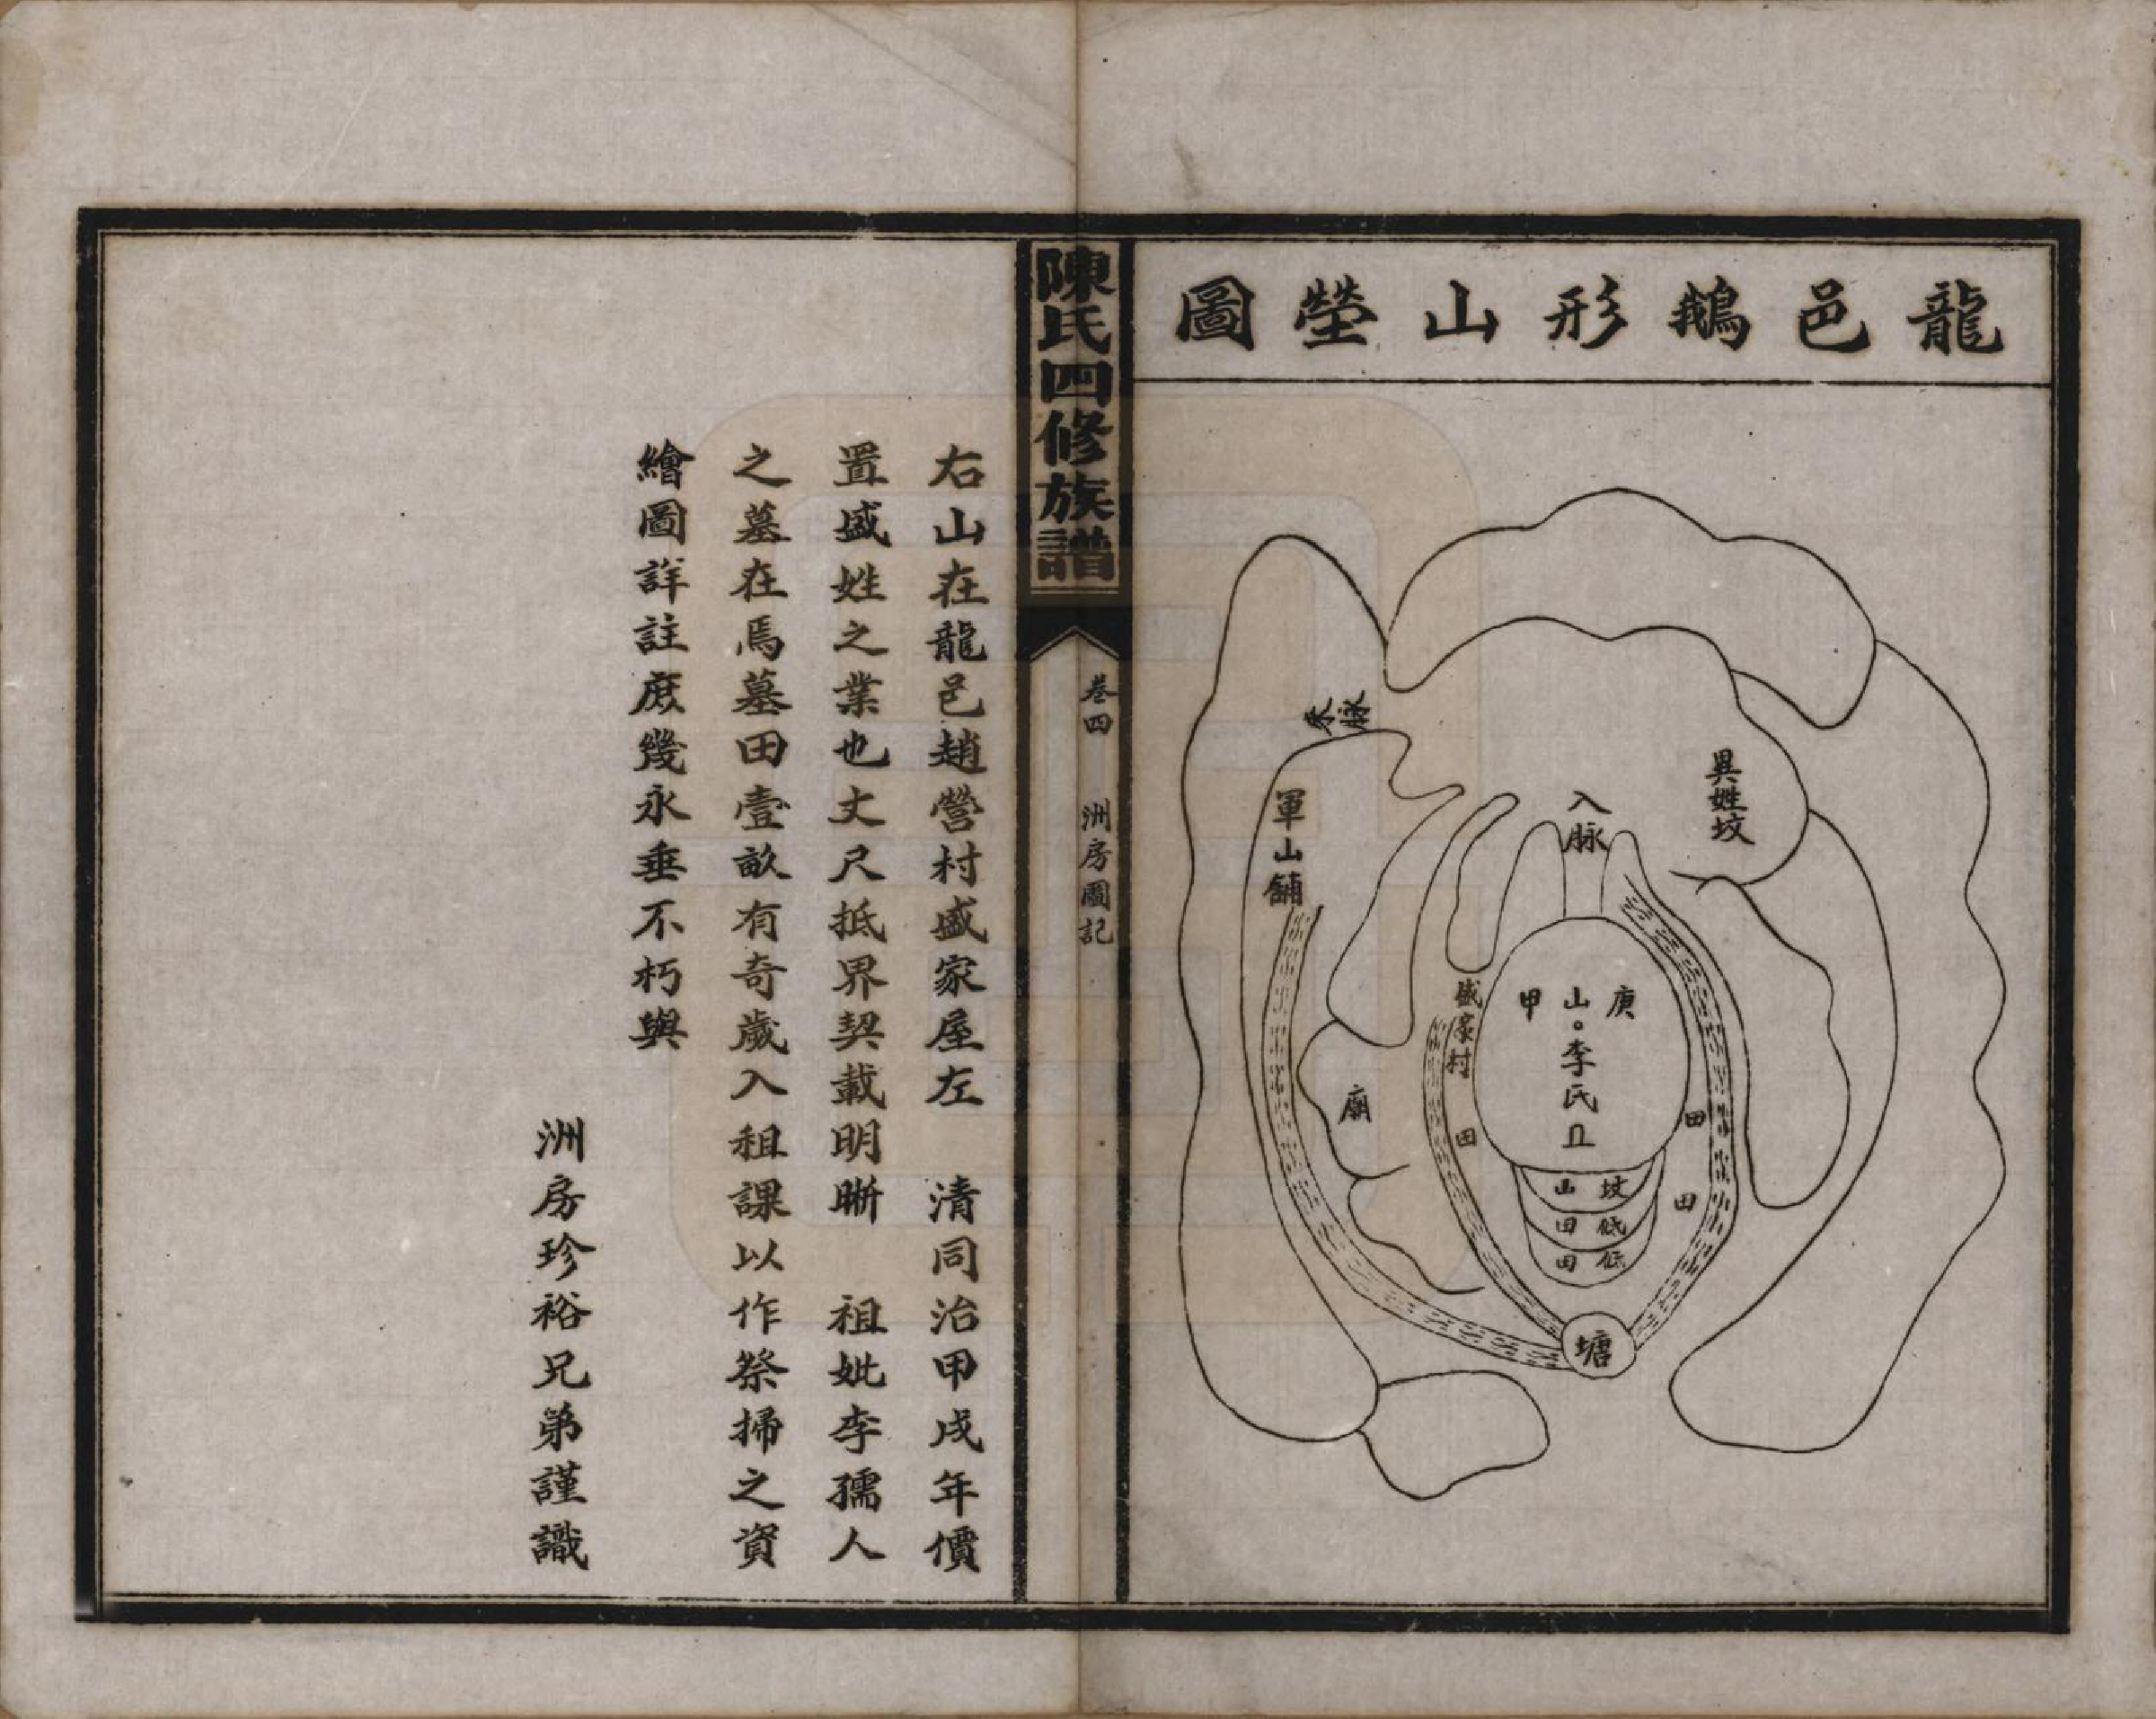 龍邑鵝形山塋圖
來脉
異姓坟
入脉
軍山舖
庚
山
甲
李氏
盛家村
廟
田
田
田
坟山
低田
低田
塘
陳氏四修族譜
卷四
洲房圖記
右山在龍邑趙營村盛家屋左　清同治甲戌年價
置盛姓之業也丈尺抵界契載明晰　祖妣李孺人
之墓在焉墓田壹畝有奇歲入租課以作祭掃之資
繪圖詳註庶幾永垂不朽與
洲房珍裕兄弟謹識